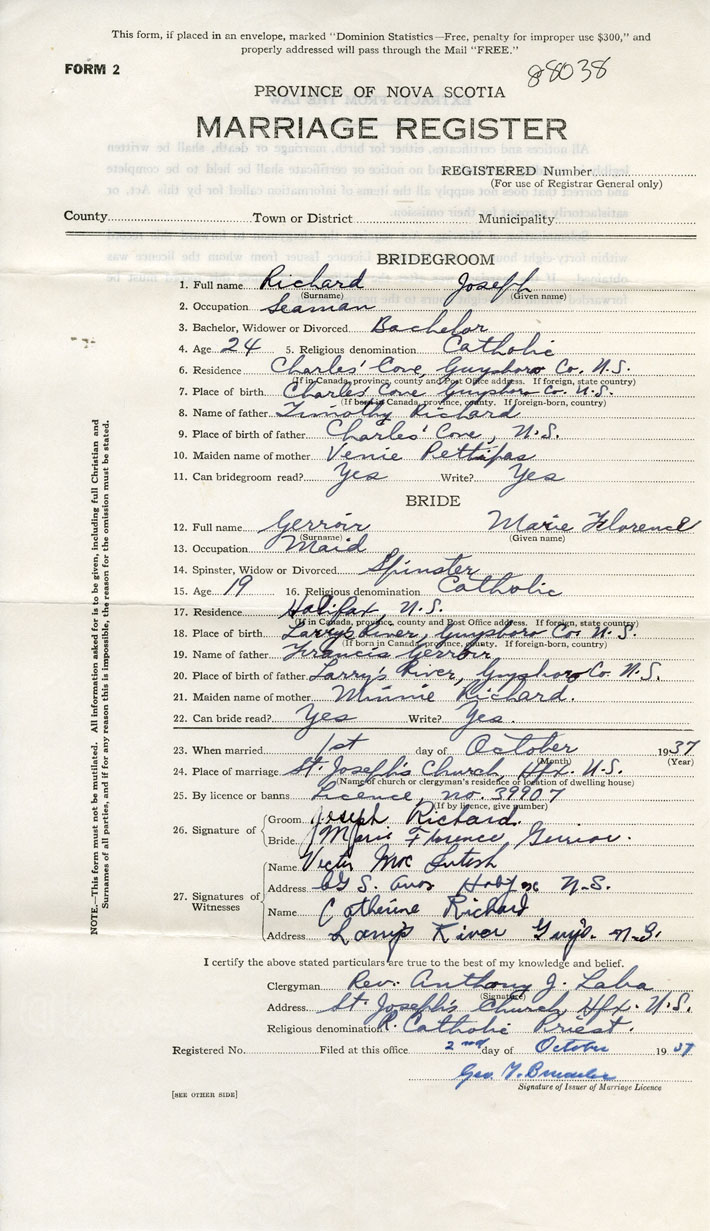 This form, if placed in an envelope, marked "Dominion Statistics—Free, penalty for improper use $300," and
properly addressed will pass through the Mail "FREE."
FORM 2
88038
PROVINCE OF NOVA SCOTIA
MARRIAGE REGISTER
REGISTERED Number
(For use of Registrar General only)
County Town or District Municipality
BRIDEGROOM
1. Full name Richard Joseph
(Surname) (Given name)
2. Occupation Seaman
3. Bachelor, Widower or Divorced Bachelor
4. Age 24 5. Religious denomination Catholic
6. Residence Charles' Cove, Guysboro Co. N.S.
(If in Canada, province, county and Post Office address. If foreign, state country)
7. Place of birth Charles' Cove Guysboro Co. N.S.
(If born in Canada, province, county. If foreign-born, country)
8. Name of father Timothy Richard
9. Place of birth of father Charles' Cove, N.S.
10. Maiden name of mother Venie Pettipas
11. Can bridegroom read? Yes Write? Yes
BRIDE
12. Full name Gerroir Marie Florence
(Surname) (Given name)
13. Occupation Maid
14. Spinster, Widow or Divorced Spinster
15. Age 19 16. Religious denomination Catholic
17. Residence Halifax, N.S.
(If in Canada, province, county and Post Office address. If foreign, state country)
18. Place of birth Larry's River, Guysboro Co. N.S.
(If born in Canada, province, county. If foreign-born, country)
19. Name of father Francis Gerroir
20. Place of birth of father Larry's River, Guysboro Co. N.S.
21. Maiden name of mother Minnie Richard.
22. Can bride read? Yes Write? Yes.
23. When married 1st day of October 1937
(Month) (Year)
24. Place of marriage St. Joseph's Church, Hfx. N.S.
(Name of church or clergyman's residence or location of dwelling house)
25. By licence or banns Licence, no. 39907
(If by licence, give number)
26. Signature of Groom Joseph Richard.
Bride Marie Florence Gerrior.
27. Signatures of Witnesses
Name Victor Mac Intosh
Address St. Halifax N.S.
Name Catherine Richard
Address Larrys River Guy's. N.S.
I certify the above stated particulars are true to the best of my knowledge and belief.
Clergyman Rev. Anthony J. Laba
(Signature)
Address St. Joseph's Church, Hfx. N.S.
Religious denomination R. Catholic Priest.
Registered No. Filed at this office 2nd day of October 1937
Geo.
Signature of Issuer of Marriage Licence
[SEE OTHER SIDE]
NOTE.—This form must not be mutilated. All information asked for is to be given, including full Christian and
Surnames of all parties, and if for any reason this is impossible, the reason for the omission must be stated.